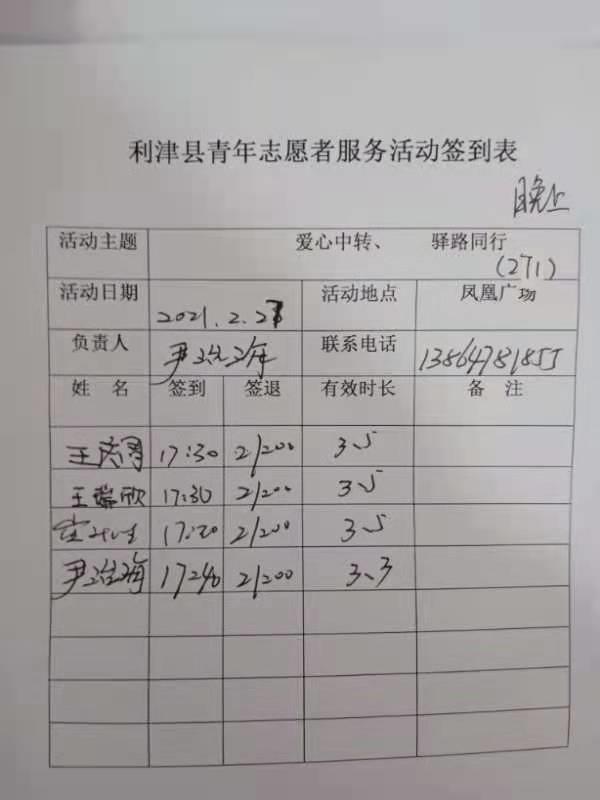 利津县青年志愿者服务活动签到表
晚上
活动主题 爱心中转、 驿路同行
(271)
活动日期 2021.2.27 活动地点 凤凰广场
负责人 尹治海 联系电话 13864781855
姓 名 签到 签退 有效时长 备 注
王 17:30 21:00 3.5
王瑞欣 17:30 21:00 3.5
21:00 3.5
尹治海 1740 21:00 3.3